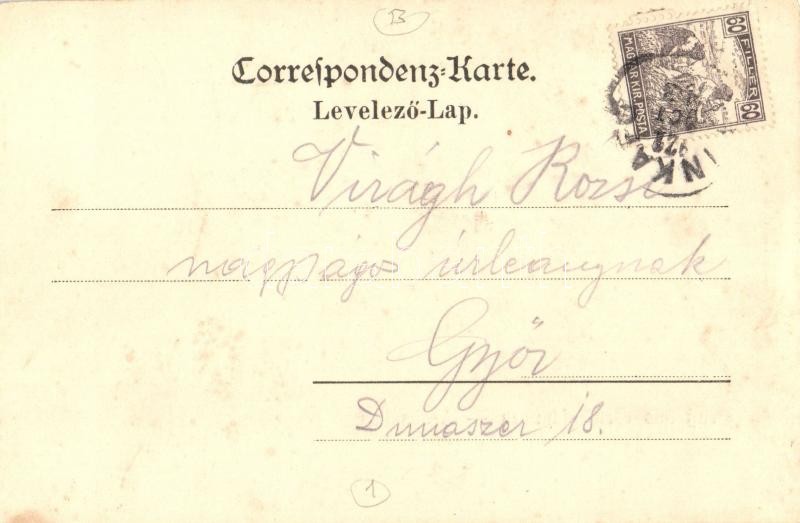 B
Correspondenz-Karte.
Levelező-Lap.
60 FILLER 60
MAGYAR KIR. POSTA
Virágh Rozsi
nagyságos úrleánynak
Győr
Dunaszer 18.
1